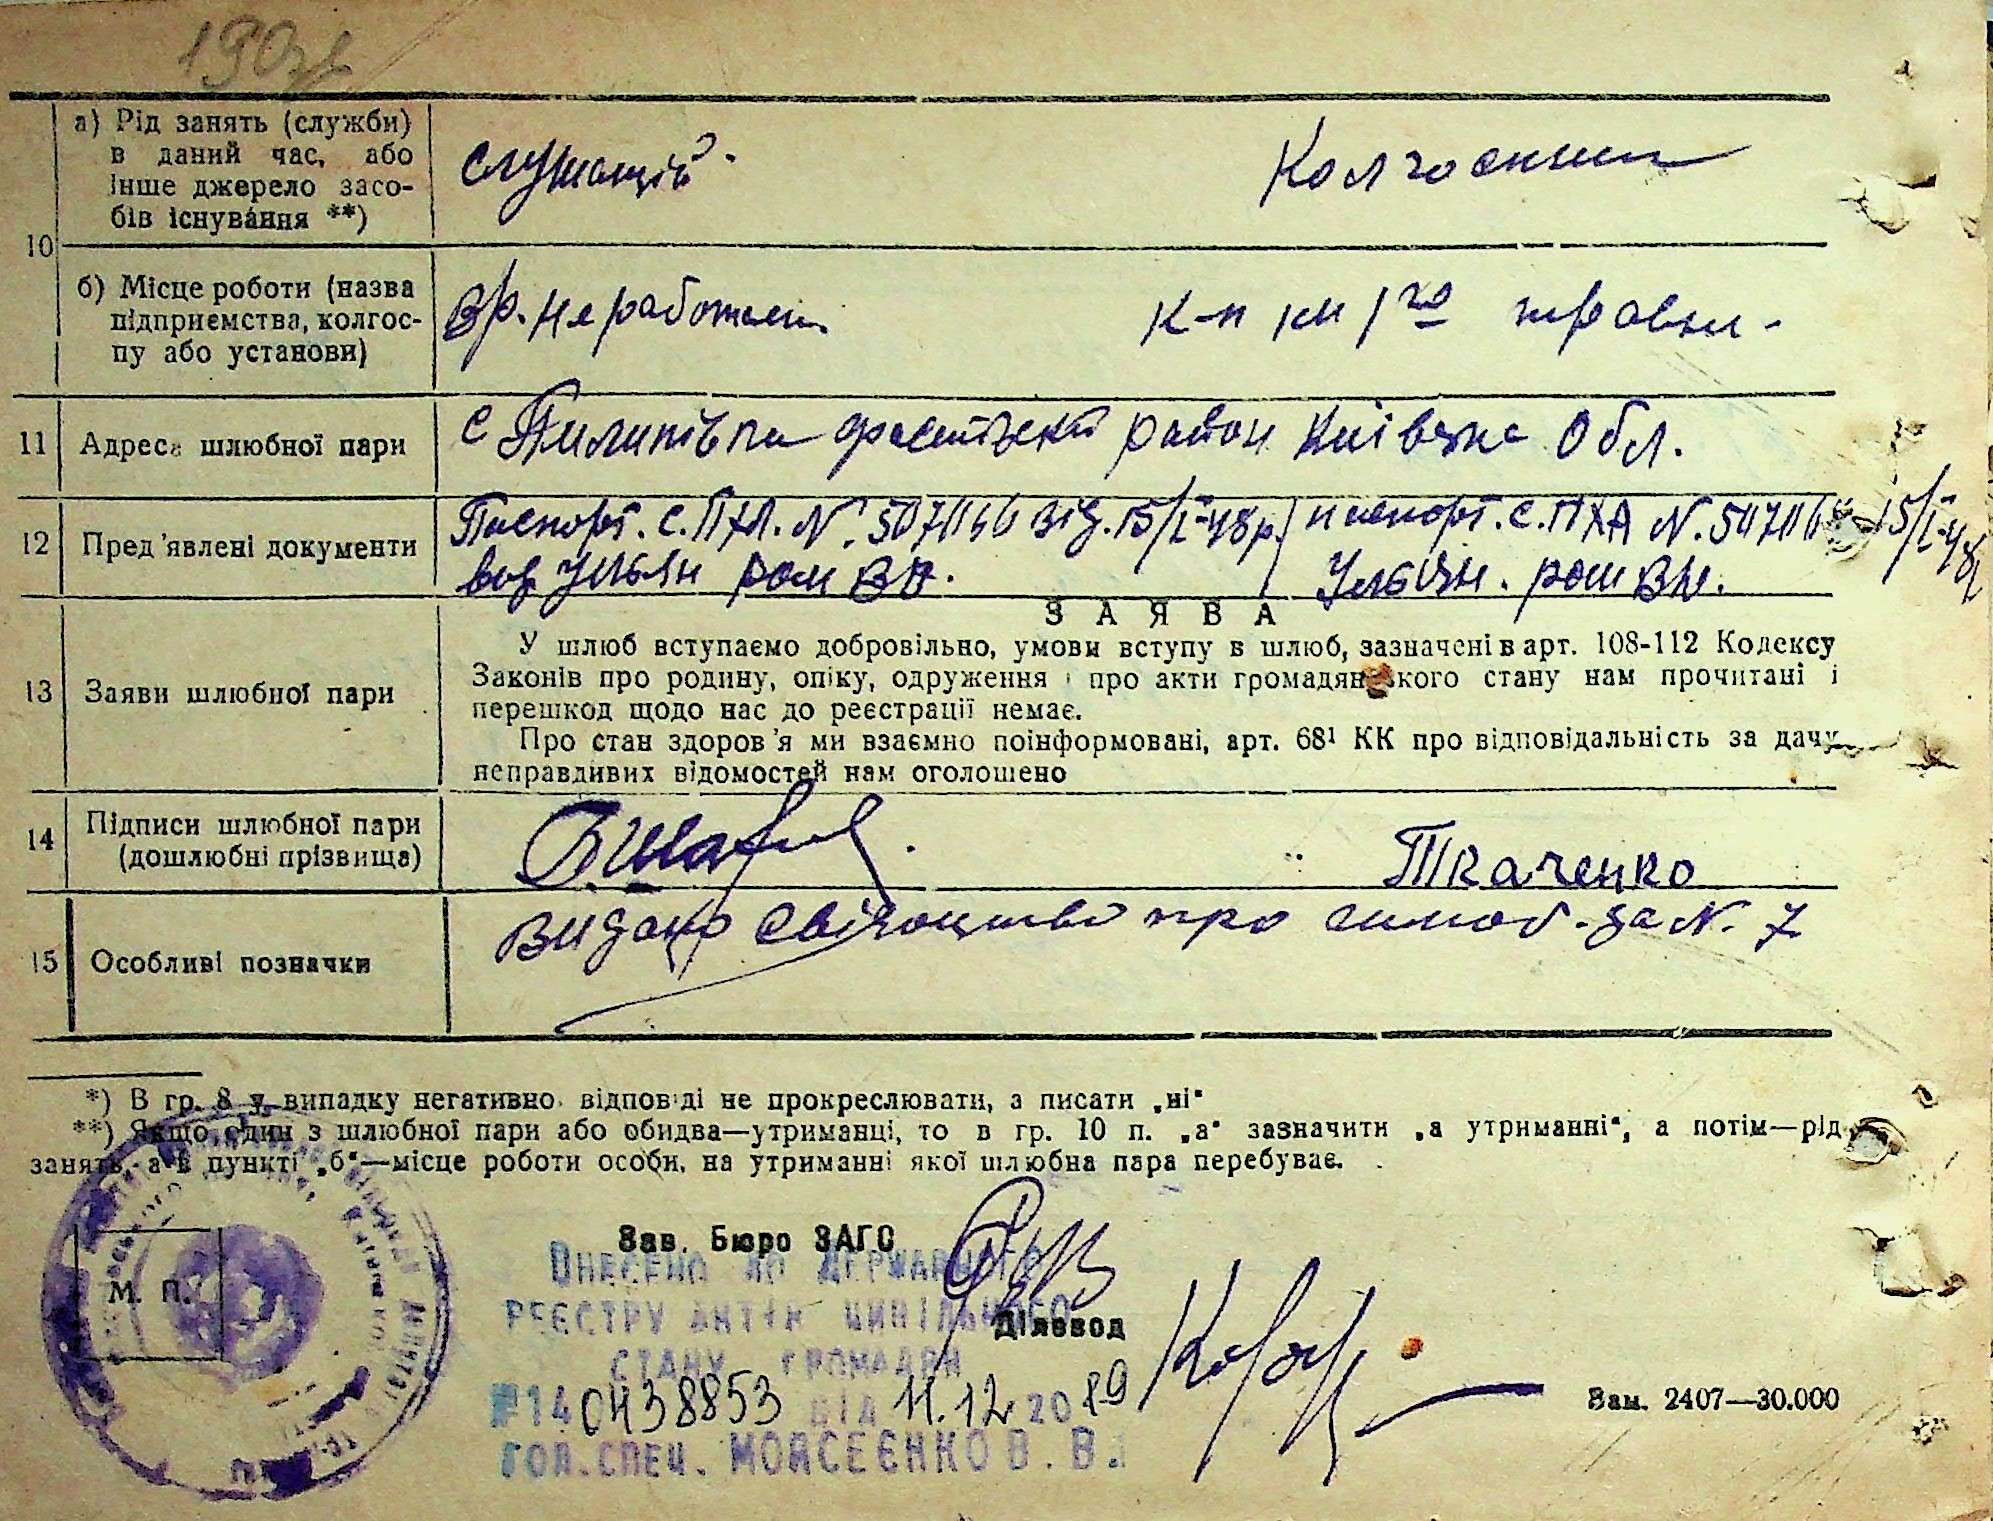 а) Рід занять (служби)
в даний час, або
інше джерело засо-
бів існування **)
служащій.
Колгоспник
10
б) Місце роботи (назва
підприємства, колгос-
пу або установи)
Вр. не работает.
к-п ім 1го травня.
11 Адреса шлюбної пари
с Пилипівка район Київська Обл.
12 Пред'явлені документи
Паспорт. с. ПХА. N. від. 15/I-48р.
паспорт. с. ПХА N. 15/I-48р
ЗАЯВА
13 Заяви шлюбної пари
У шлюб вступаємо добровільно, умови вступу в шлюб, зазначені в арт. 108-112 Кодексу
Законів про родину, опіку, одруження і про акти громадянського стану нам прочитані і
перешкод щодо нас до реєстрації немає.
Про стан здоров'я ми взаємно поінформовані, арт. 68¹ КК про відповідальність за дачу
неправдивих відомостей нам оголошено
14 Підписи шлюбної пари
(дошлюбні прізвища)
Ткаченко
15 Особливі позначки
Видано свідоцтво про шлюб. за N. 7
*) В гр. 8 у випадку негативно. відповіді не прокреслювати, а писати „ні“
**) Якщо один з шлюбної пари або обидва—утриманці, то в гр. 10 п. „а“ зазначити „а утриманні“, а потім—рід
занять, а в пункті „б“—місце роботи особи, на утриманні якої шлюбна пара перебуває.
М. П.
Зав. Бюро ЗАГС
Внесено до Державного
реєстру актів цивільного
Діловод
стану громадян
№ 14 0438853 від 11.12 2019
Гол. спец. Моисеєнко В. В.
Зам. 2407—30.000